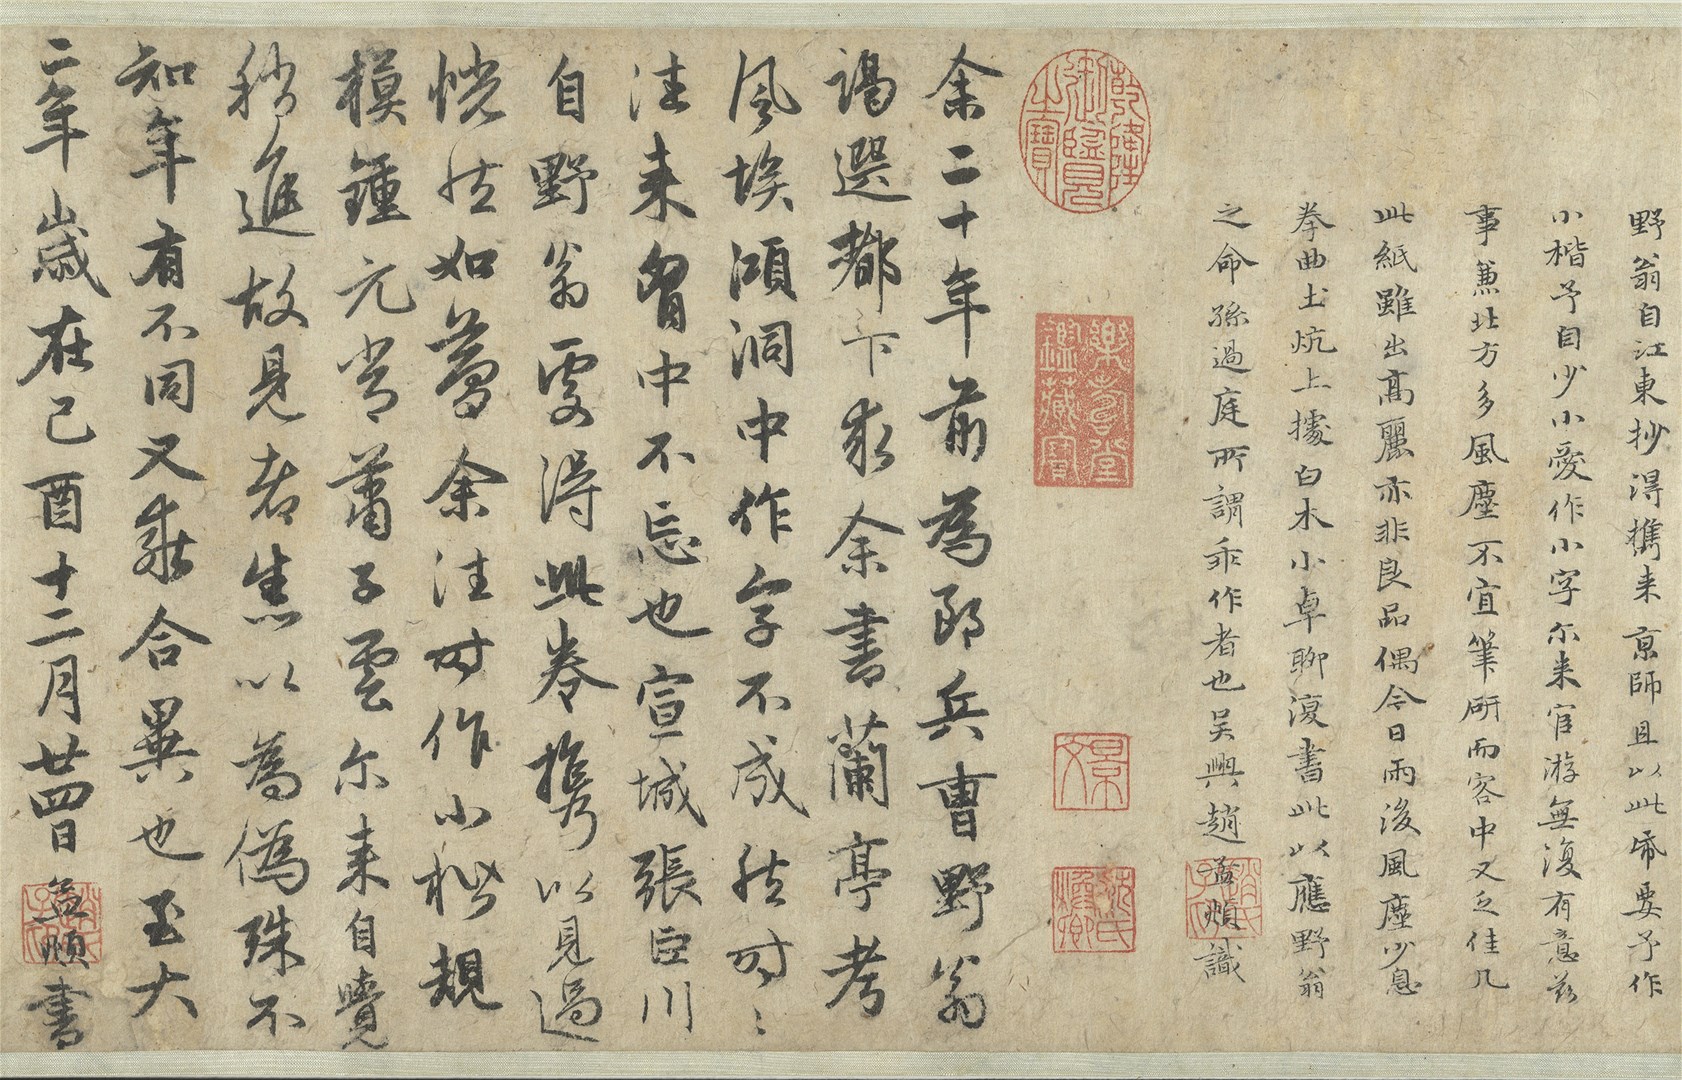 野翁自江東抄得攜来京師且以此帋要予作
小楷予自少小愛作小字尒来官游無復有意茲
事兼北方多風塵不宜筆研而客中又乏佳几
此紙雖出髙麗亦非良品偶今日雨後風塵少息
拳曲土炕上據白木小卓聊復書此以應野翁
之命孫過庭所謂乖作者也吴興趙孟頫識
乾隆御覽之寶
樂壽堂鑑藏寶
余二十年前為郎兵曹野翁
謁選都下求余書蘭亭考
風埃澒洞中作字不成然時時
往来胷中不忘也宣城張巨川
自野翁更得此卷攜以見過
恍然如夢余往時作小楷規
模鍾元常蕭子雲尒来自覺
稍進故見者焦以為偽殊不
知年有不同又乖合異也至大
二年歲在己酉十二月廿四日孟頫書